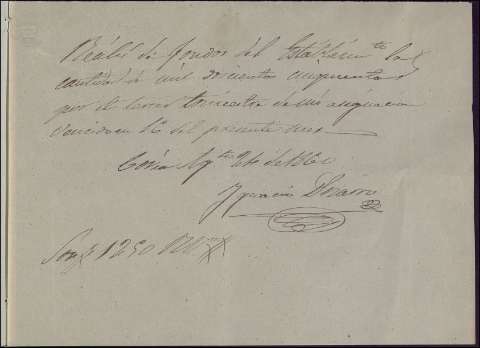 Recibí de fondos del Establecim.to la
cantidad de mil doscientos cincuenta
por el tercer trimestre de mi asignacion
vencido en 1º del presente mes
Agto de 186
Ignacio
Son 1250